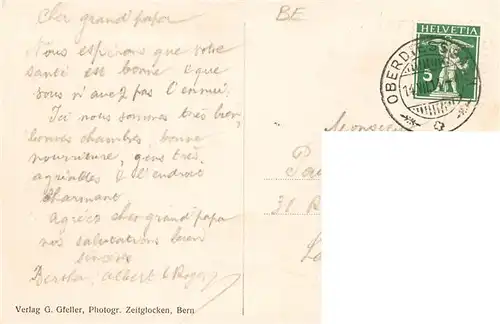 Cher grand'papa
Nous espérons que votre
santé est bonne & que
vous n'avez pas l'ennui.
Ici nous sommes très bien,
bonnes chambres, bonne
nourriture, gens très
agréables & l'endroit
charmant
Agréez cher grand papa
nos salutations bien
sincères
Bertha, Albert & Roger
Verlag G. Gfeller, Photogr. Zeitglocken, Bern
BE
HELVETIA
5
OBERDIESSB
Monsieur
31 R